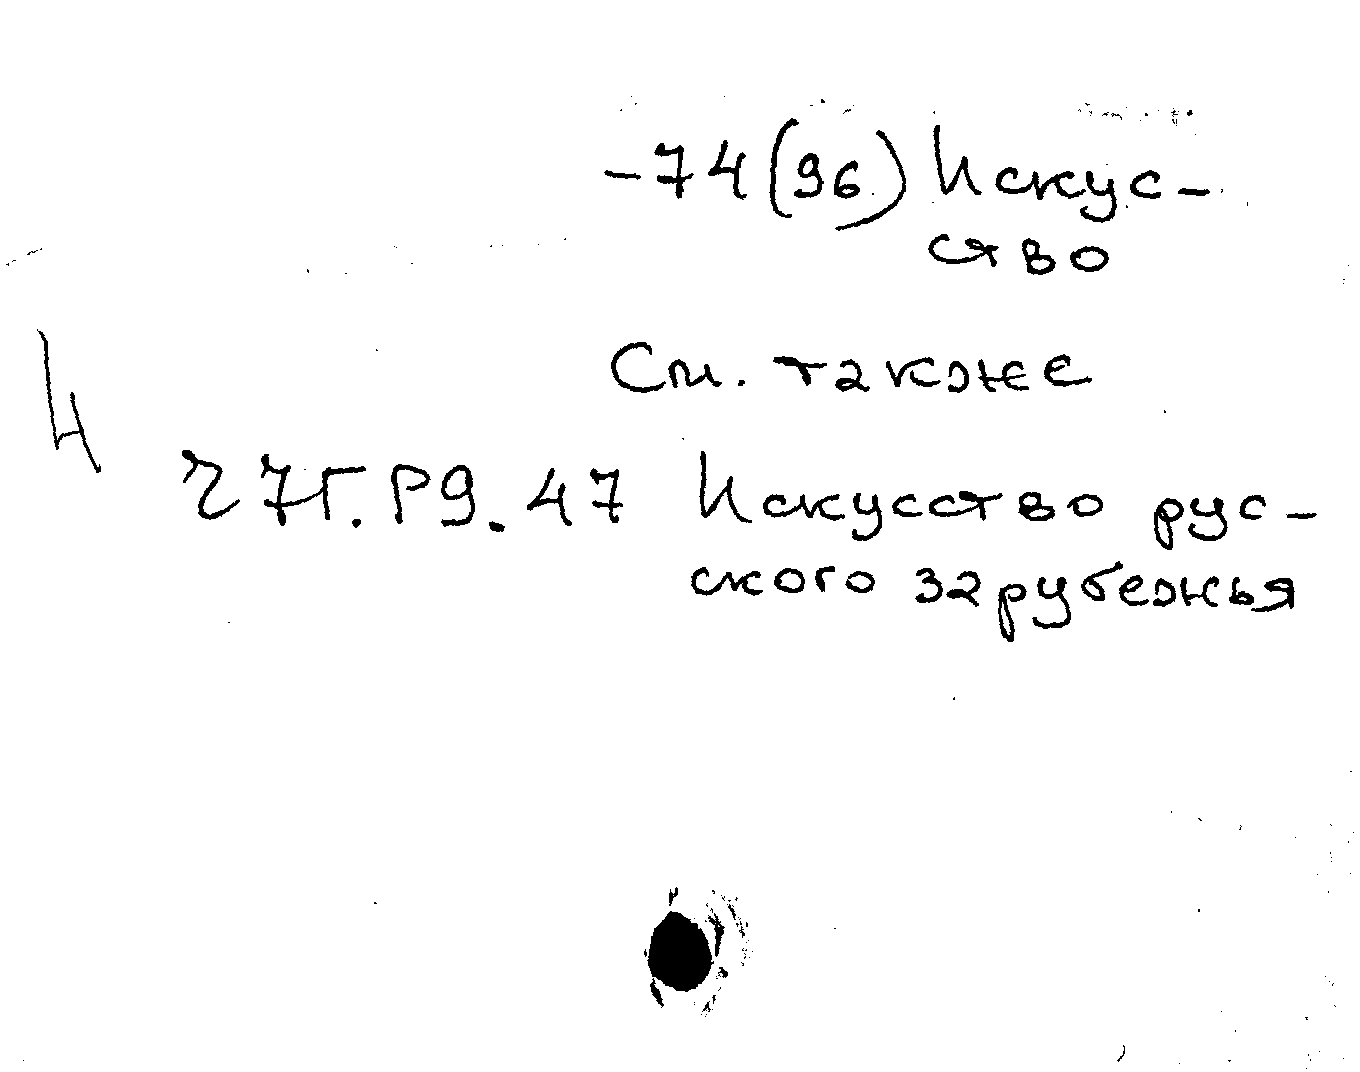 -74(96) Искус-
ство
См. также
И
Z7Г.Р9.47 Искусство рус-
ского зарубежья